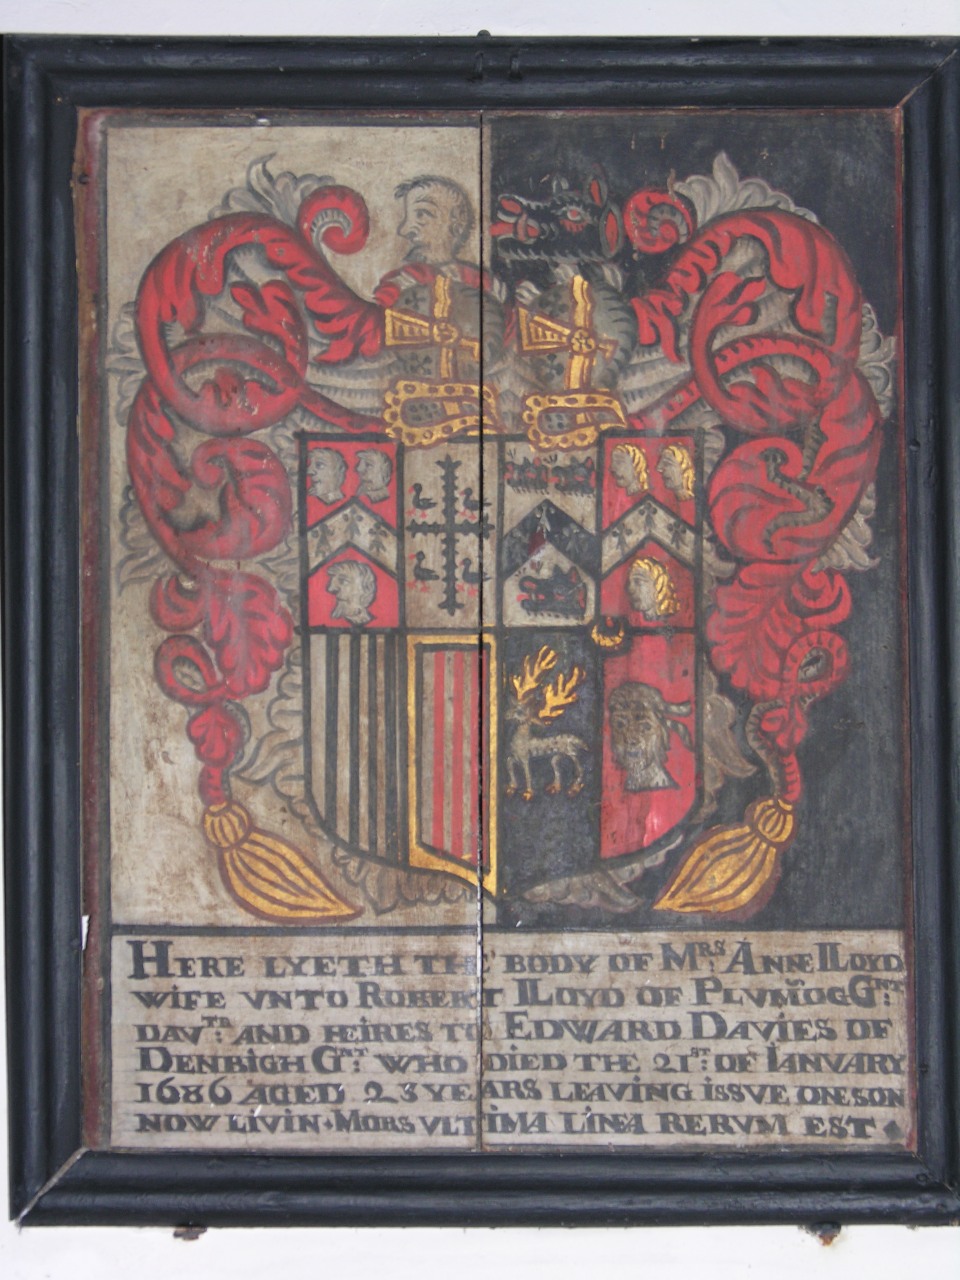 HERE LYETH THE BODY OF MRS: ANNE LLOYD
WIFE VNTO ROBERT LLOYD OF PLVMOG GNT:
DAVTR: AND HEIRES TO EDWARD DAVIES OF
DENBIGH GNT: WHO DIED THE 21ST: OF IANVARY
1686 AGED 23 YEARS LEAVING ISSVE ONE SON
NOW LIVIN • MORS VLTIMA LINEA RERVM EST